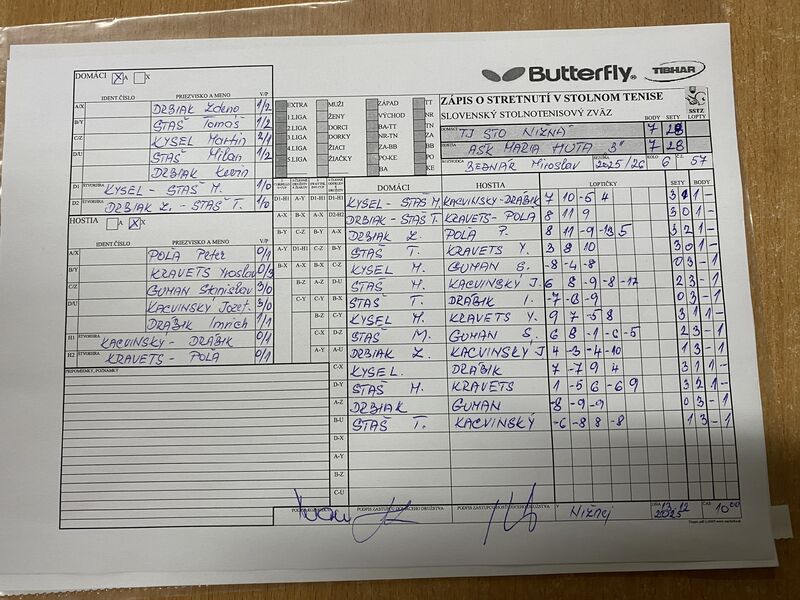 DOMÁCI X A X
IDENT ČÍSLO PRIEZVISKO A MENO V/P
A/X DRBIAK Zdeno 1/2
B/Y STAŠ Tomáš 1/2
C/Z KYSEL Martin 2/1
D/U STAŠ Milan 1/2
DRBIAK Kevin
D1 ŠTVORHRA KYSEL - STAŠ M. 1/0
D2 ŠTVORHRA DRBIAK Z. - STAŠ T. 1/0
HOSTIA A X X
IDENT ČÍSLO PRIEZVISKO A MENO V/P
A/X POĽA Peter 0/1
B/Y KRAVETS Yroslav 0/3
C/Z GUMAN Stanislav 3/0
D/U KACVINSKÝ Jozef 3/0
DRÁBIK Imrich 1/1
H1 ŠTVORHRA KACVINSKÝ - DRÁBIK 0/1
H2 ŠTVORHRA KRAVETS - POĽA 0/1
PRIPOMIENKY, POZNÁMKY
EXTRA MUŽI ZÁPAD TT
1.LIGA ŽENY VÝCHOD NR
2.LIGA DORCI BA-TT TN
3.LIGA DORKY NR-TN ZA
4.LIGA ŽIACI ZA-BB BB
5.LIGA ŽIAČKY PO-KE PO
BA KE
Butterfly TIBHAR
ZÁPIS O STRETNUTÍ V STOLNOM TENISE
SLOVENSKÝ STOLNOTENISOVÝ ZVÄZ
SSTZ
BODY SETY LOPTY
DOMÁCI TJ STO NIŽNÁ 7 28
HOSTIA AŠK MARIA HUTA B" 7 28
ROZHODCA BEDNÁR Miroslav SEZÓNA 2025/26 KOLO 6 Č.Z. 57
DOMÁCI HOSTIA LOPTIČKY SETY BODY
D1-H1 KYSEL - STAŠ M. KACVINSKY-DRÁBIK 7 10 -5 4 3 1 1 -
D2-H2 DRBIAK - STAŠ T. KRAVETS - POĽA 8 11 9 3 0 1 -
A-X DRBIAK Z. POĽA P. 8 11 -9 -13 5 3 2 1 -
B-Y STAŠ T. KRAVETS Y. 3 8 10 3 0 1 -
C-Z KYSEL M. GUMAN S. -8 -4 -8 0 3 - 1
D-U STAŠ M. KACVINSKÝ J. 6 8 -9 -8 -12 2 3 - 1
STAŠ T. DRÁBIK I. -7 -6 -9 0 3 - 1
KYSEL M. KRAVETS Y. 9 7 -5 8 3 1 1 -
STAŠ M. GUMAN S. 6 8 -1 -6 -5 2 3 - 1
A-U DRBIAK Z. KACVINSKÝ J 4 -3 -4 -10 1 3 - 1
C-X KYSEL. DRÁBIK 7 -7 9 4 3 1 1 -
D-Y STAŠ M. KRAVETS 1 -5 6 -6 9 3 2 1 -
A-Z DRBIAK GUMAN -8 -9 -9 0 3 - 1
B-U STAŠ T. KACVINSKÝ -6 -8 8 -8 1 3 - 1
D-X
A-Y
B-Z
C-U
PODPIS ZÁSTUPCU DOMÁCEHO DRUŽSTVA PODPIS ZÁSTUPCU HOSŤUJÚCEHO DRUŽSTVA V Nižnej DŇA 13.12 2025 ČAS 10 00